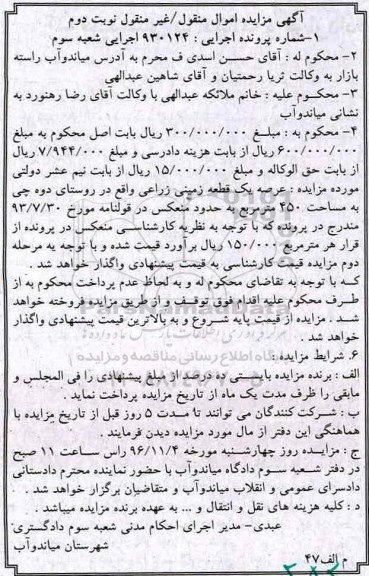 آگهی مزایده اموال منقول/غیر منقول نوبت دوم
۱-شماره پرونده اجرایی : ۹۳۰۱۲۴ اجرایی شعبه سوم
۲- محکوم له : آقای حسن اسدی ف محرم به آدرس میاندوآب راسته
بازار به وکالت ثریا رحمتیان و آقای شاهین عبدالهی
۳- محکوم علیه : خانم ملائکه عبدالهی با وکالت آقای رضا رهنورد به
نشانی میاندوآب
۴- محکوم به : مبلغ ۳۰۰/۰۰۰/۰۰۰ ریال بابت اصل محکوم به مبلغ
۶۰۰/۰۰۰/۰۰۰ ریال از بابت هزینه دادرسی و مبلغ ۷/۹۴۴/۰۰۰ ریال
از بابت حق الوکاله و مبلغ ۱۵/۰۰۰/۰۰۰ ریال از بابت نیم عشر دولتی
مورده مزایده : عرصه یک قطعه زمینی زراعی واقع در روستای دوه چی
به مساحت ۴۵۰ مترمربع به حدود منعکس در قولنامه مورخ ۹۳/۷/۳۰
مندرج در پرونده که با توجه به نظریه کارشناسی منعکس در پرونده از
قرار هر مترمربع ۱۵۰/۰۰۰ ریال برآورد قیمت شده و با توجه به مرحله
دوم مزایده قیمت کارشناسی به قیمت پیشنهادی واگذار خواهد شد .
که با توجه به تقاضای محکوم له و به لحاظ عدم پرداخت محکوم به از
طرف محکوم علیه اقدام فوق توقف و از طریق مزایده فروخته خواهد
شد . مزایده از قیمت پایه شروع و به بالاترین قیمت پیشنهادی واگذار
خواهد شد .
۶. شرایط مزایده :
الف : برنده مزایده بایستی ده درصد از مبلغ پیشنهادی را فی المجلس و
مابقی را ظرف مدت یک ماه از تاریخ مزایده پرداخت نماید .
ب : شرکت کنندگان می توانند تا مدت ۵ روز قبل از تاریخ مزایده با
هماهنگی این دفتر از مال مورد مزایده دیدن فرمایند .
ج : مزایده روز چهارشنبه مورخه ۹۶/۱۱/۴ راس ساعت ۱۱ صبح
در دفتر شعبه سوم دادگاه میاندوآب با حضور نماینده محترم دادستانی
دادسرای عمومی و انقلاب میاندوآب و متقاضیان برگزار خواهد شد .
د : کلیه هزینه های نقل و انتقال و ... به عهده برنده مزایده میباشد .
عبدی- مدیر اجرای احکام مدنی شعبه سوم دادگستری
شهرستان میاندوآب
م الف۴۷